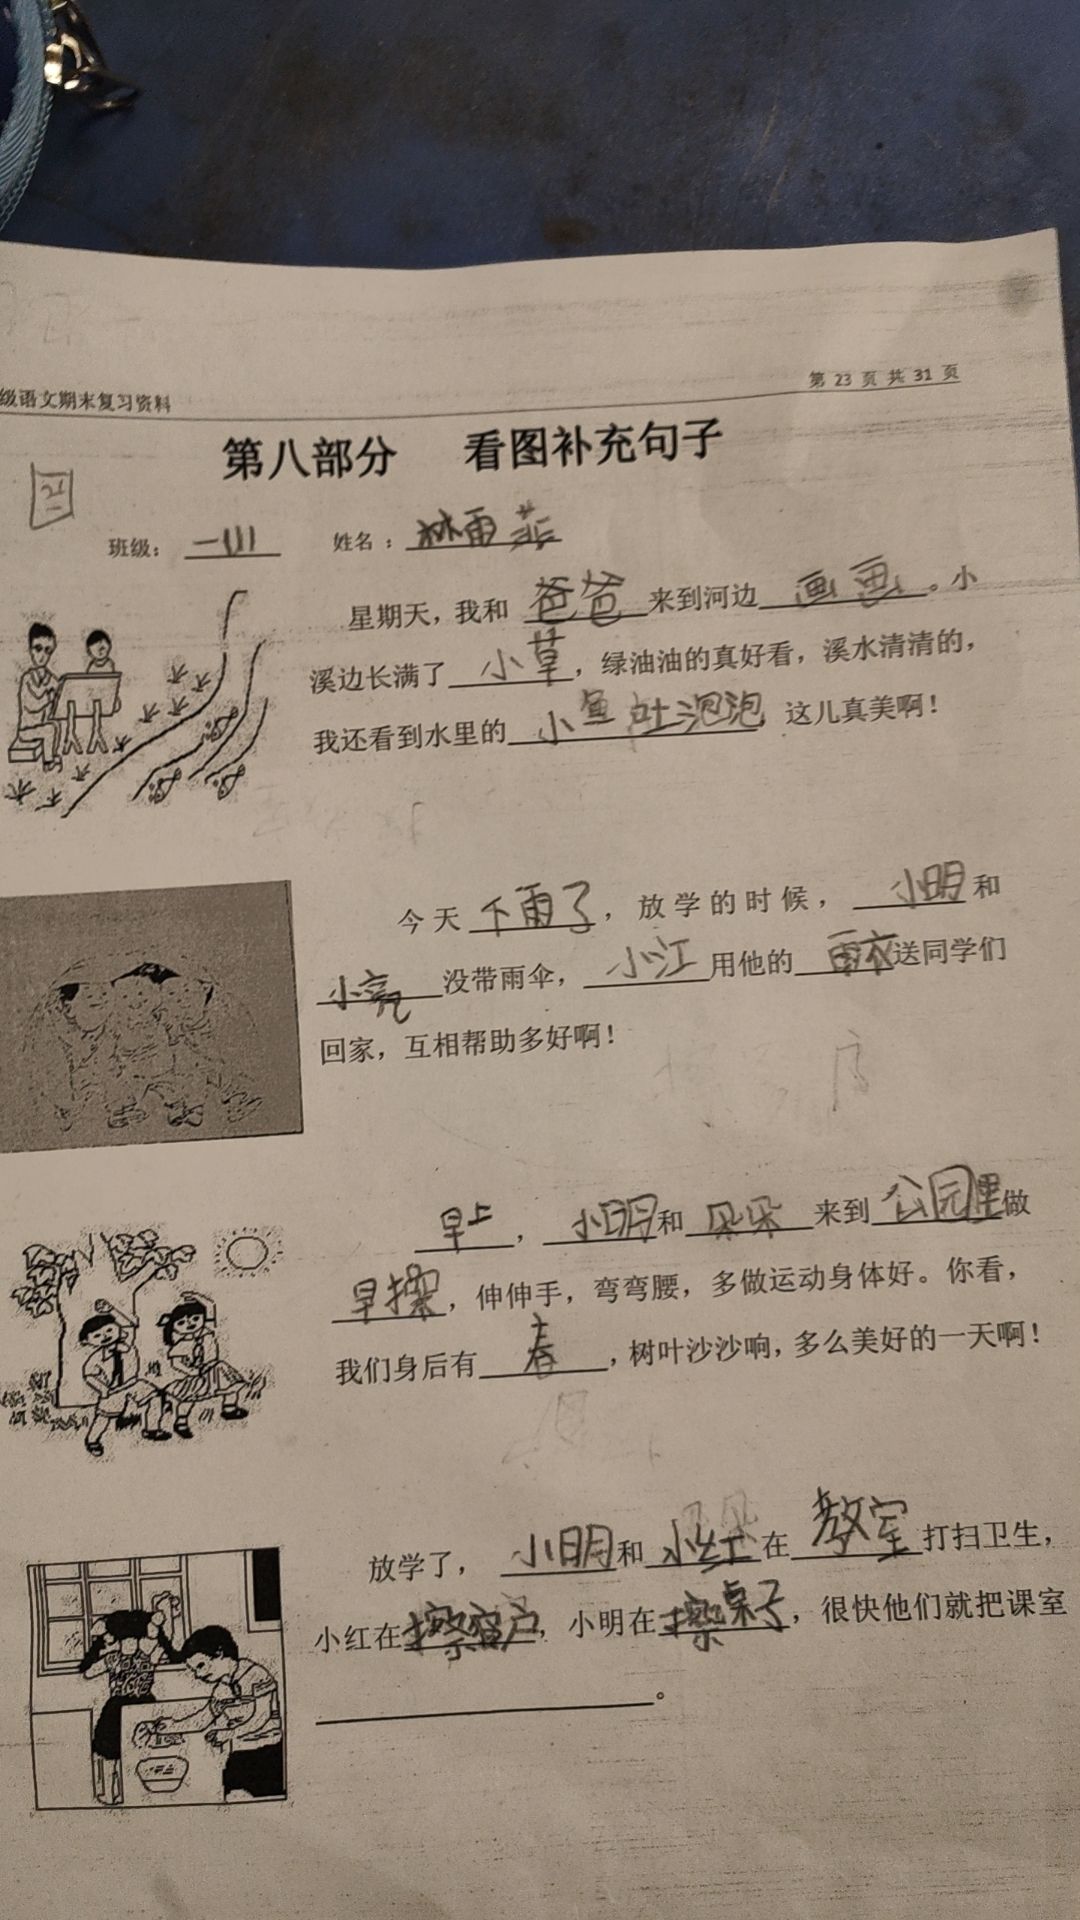 级语文期末复习资料
第 23 页 共 31 页
第八部分 看图补充句子
班级： 一(1) 姓名： 林雨菲
星期天，我和 爸爸 来到河边 画画 。小
溪边长满了 小草 ，绿油油的真好看，溪水清清的，
我还看到水里的 小鱼吐泡泡 这儿真美啊！
今天 下雨了 ，放学的时候， 小明 和
小亮 没带雨伞， 小江 用他的 雨衣 送同学们
回家，互相帮助多好啊！
早上 ， 小明 和 朵朵 来到 公园里 做
早操 ，伸伸手，弯弯腰，多做运动身体好。你看，
我们身后有 春 ，树叶沙沙响，多么美好的一天啊！
放学了， 小明 和 小红 在 教室 打扫卫生，
小红在 擦窗户 ，小明在 擦桌子 ，很快他们就把课室
。